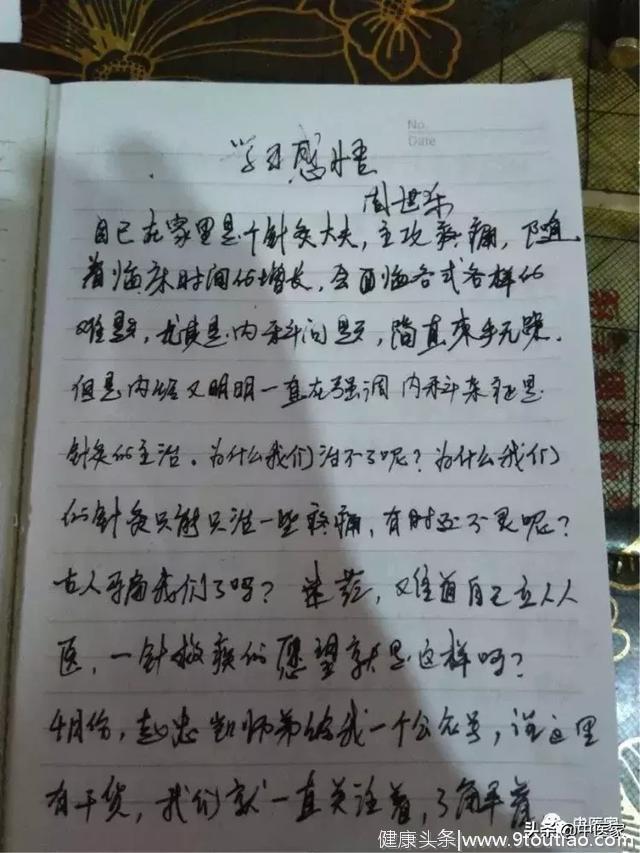 No.
Date
学习感悟
周世东
自己在家里是个针灸大夫，主攻疼痛，随
着临床时间的增长，会面临各式各样的
难题，尤其是内科问题，简直束手无策。
但是内经又明明一直在强调内科杂症是
针灸的主治。为什么我们治不了呢？为什么我们
的针灸只能只治一些疼痛，有时还不灵呢？
古人骗我们了吗？迷茫，难道自己立人人
医，一针救疾的愿望就是这样吗？
4月份，赵忠凯师弟给我一个公众号，说这里
有干货，我们就一直关注着，了解着
头条@中医家
中医家
健康头条/www.9toutiao.com